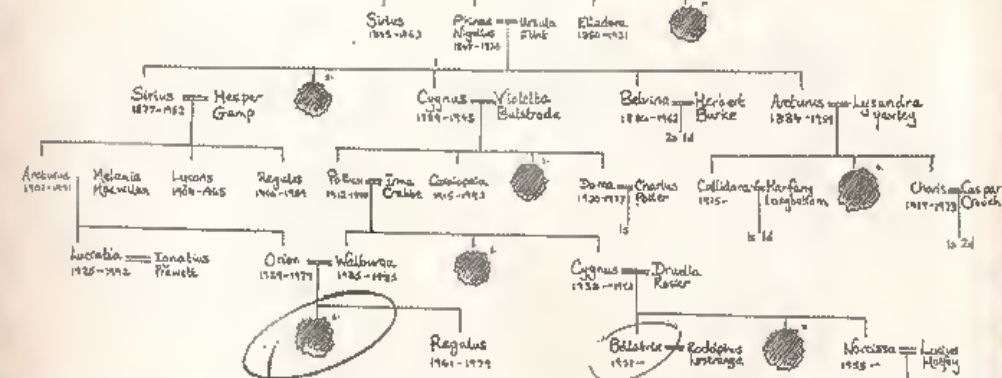 Sirius
1845-1853
Phineas
Nigellus
Ursula
Flint
Elladora
1850-1931
Sirius
1877-1952
Hesper
Gamp
Cygnus
1889-1943
Violetta
Bulstrode
Belvina
Herbert
Burke
2s 1d
Arcturus
Lysandra
Yaxley
Arcturus
1901-1991
Melania
Macmillan
Lycoris
Regulus
Pollux
Irma
Crabbe
Cassiopeia
1915-1992
Dorea
1920-1977
Charlus
Potter
1s
Callidora
1915-
Harfang
Longbottom
1s 1d
Charis
1919-1973
Caspar
Crouch
1s 2d
Lucretia
1925-1992
Ignatius
Prewett
Orion
1929-1979
Walburga
1925-1985
Cygnus
Druella
Rosier
Regulus
1961-1979
Bellatrix
1951-
Rodolphus
Lestrange
Narcissa
1955-
Lucius
Malfoy